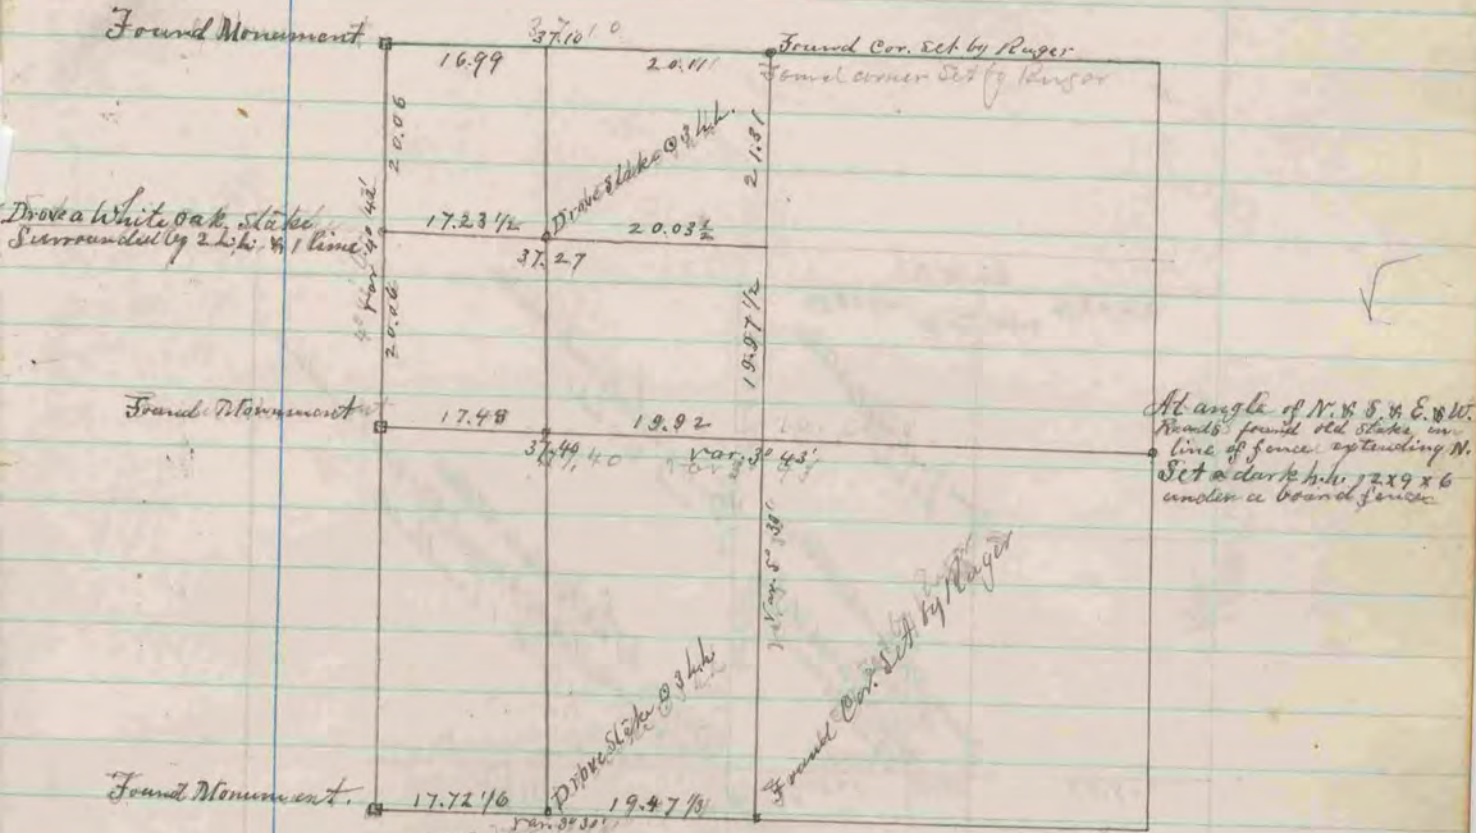 Found Monument
37.10
16.99
20.11
Found Cor. set by Ruger
Found corner Set by Ruger
20.06
21.31
Drove Stake @ 3 h.h.
Drove a White oak stake
Surrounded by 2 h.h. & 1 lime
Var. 4° 42'
17.23 1/2
20.03 1/2
37.27
20.06
19.97 1/2
Found Monument
17.48
19.92
37.40
Var. 3° 43'
At angle of N. & S. & E. & W.
Roads found old stake in
line of fence extending N.
Set a dark h.h. 12x9x6
under a board fence
Var. 5° 30'
Found Cor. Set by Ruger
Drove Stake @ 3 h.h.
Found Monument.
17.72 1/6
19.47 1/3
Var. 3° 30'